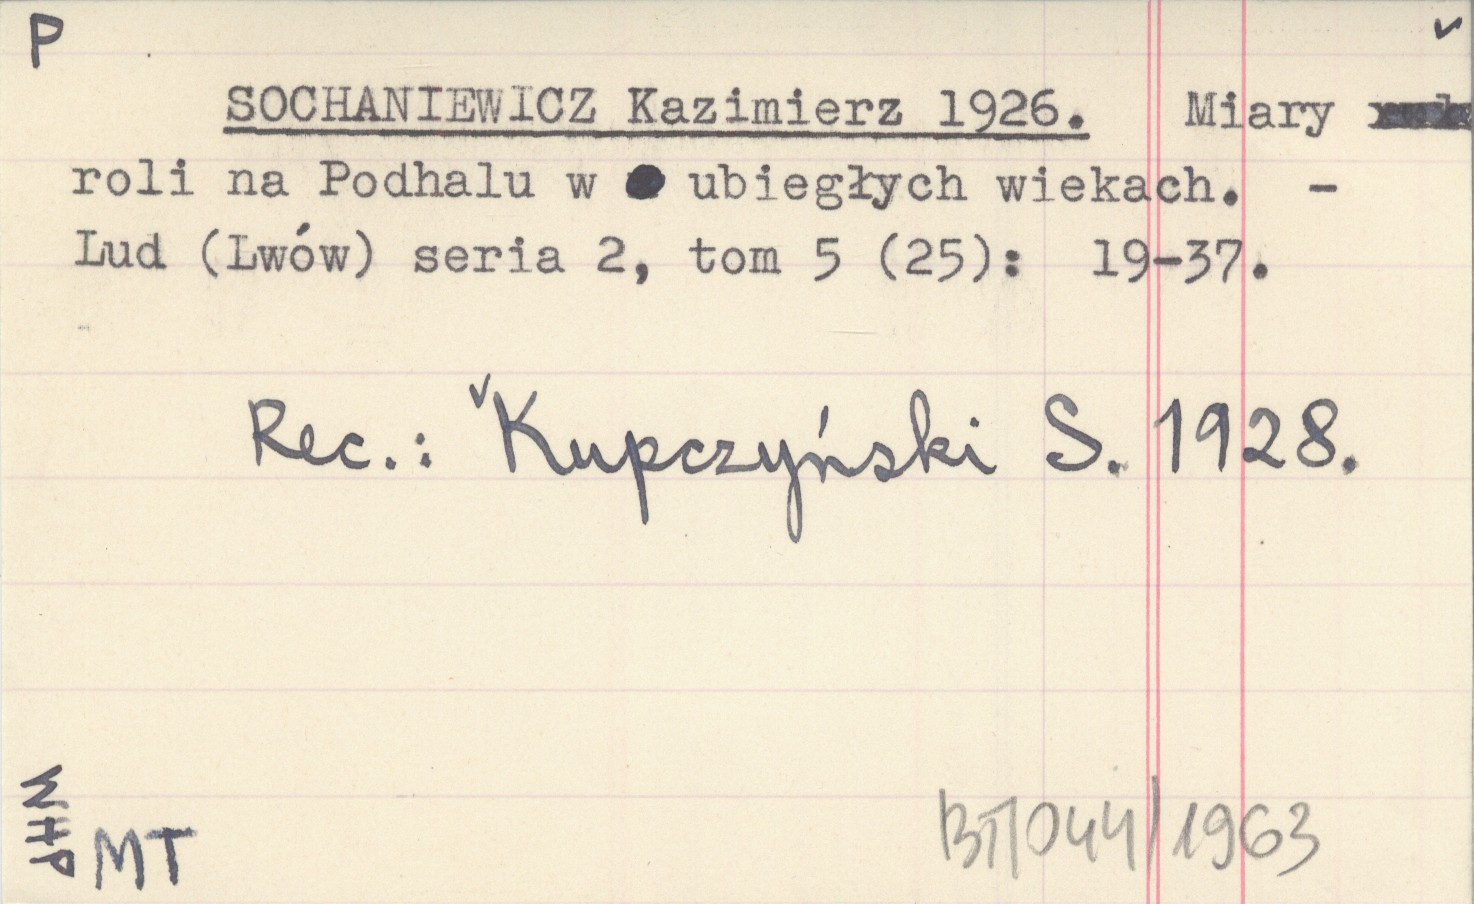 P
SOCHANIEWICZ Kazimierz 1926. Miary
roli na Podhalu w ubiegłych wiekach. -
Lud (Lwów) seria 2, tom 5 (25): 19-37.
Rec.: Kupczyński S. 1928.
WHP
MT
BT/044/1963